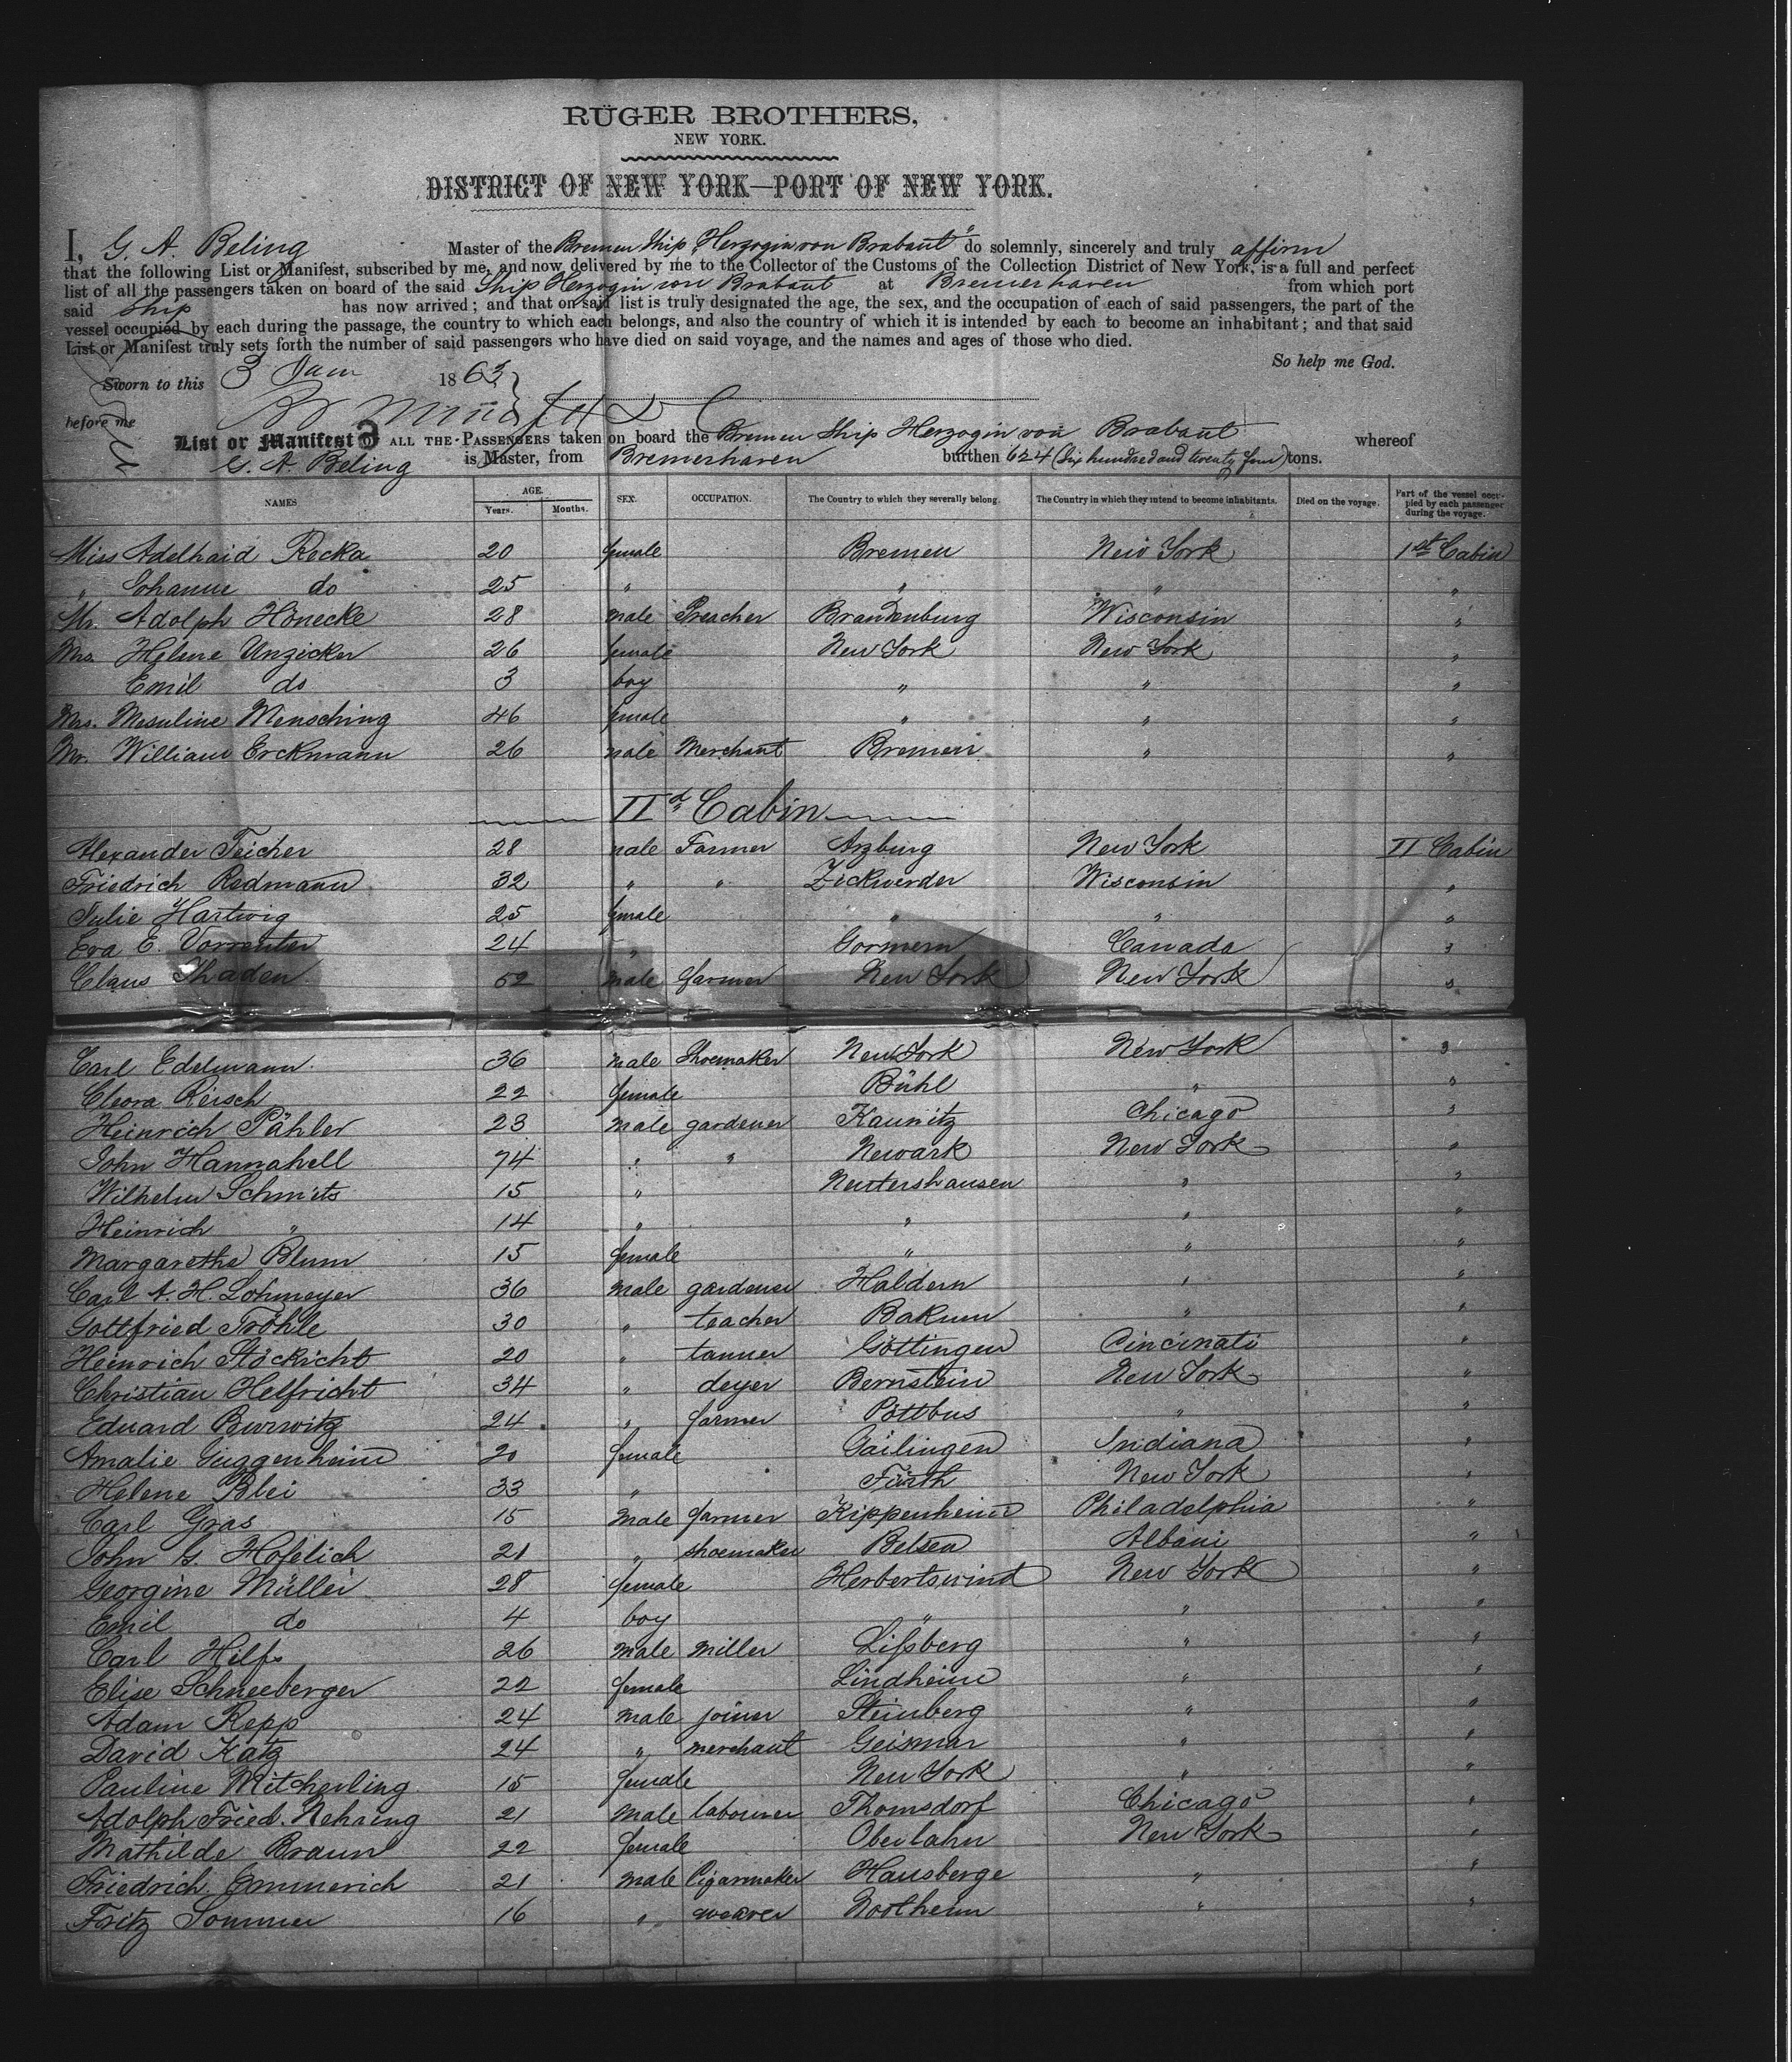 RÜGER BROTHERS,
NEW YORK.
DISTRICT OF NEW YORK—PORT OF NEW YORK.
I, G. A. Beling Master of the Bremen Ship „Herzogin von Brabant" do solemnly, sincerely and truly affirm
that the following List or Manifest, subscribed by me, and now delivered by me to the Collector of the Customs of the Collection District of New York, is a full and perfect
list of all the passengers taken on board of the said Ship Herzogin von Brabant at Bremerhaven from which port
said Ship has now arrived; and that on said list is truly designated the age, the sex, and the occupation of each of said passengers, the part of the
vessel occupied by each during the passage, the country to which each belongs, and also the country of which it is intended by each to become an inhabitant; and that said
List or Manifest truly sets forth the number of said passengers who have died on said voyage, and the names and ages of those who died.
So help me God.
Sworn to this 3 Jan 1863
before me
List or Manifest OF ALL THE PASSENGERS taken on board the Bremen Ship Herzogin von Brabant whereof
G. A. Beling is Master, from Bremerhaven burthen 624 (Six hundred and twenty four) tons.
NAMES AGE. Years. Months. SEX. OCCUPATION. The Country to which they severally belong. The Country in which they intend to become inhabitants. Died on the voyage. Part of the vessel occupied by each passenger during the voyage.
Miss Adelhaid Recka 20 female Bremen New York 1st Cabin
„ Johanne do 25 „ „ „ „
Mr. Adolph Hönecke 28 male Preacher Brandenburg Wisconsin „
Mrs. Helene Unzicker 26 female New York New York „
Emil do 3 boy „ „ „
Mrs. Mesuline Mensching 46 female „ „ „
Mr. William Erckmann 26 male Merchant Bremen „ „
IId Cabin
Alexander Teicher 28 male Farmer Arzburg New York II Cabin
Friedrich Redmann 32 „ „ Zickwerder Wisconsin „
Julie Hartwig 25 female „ „ „
Eva E. 24 „ Gormern Canada „
Claus Thaden 52 male farmer New York New York „
Carl Edelmann 36 male Shoemaker New York New York „
Cleora Reisch 22 female Bühl „ „
Heinrich Pähler 23 male gardener Kaunitz Chicago „
John Hannahell 74 „ „ Newark New York „
Wilhelm Schmits 15 „ Neutershausen „ „
Heinrich „ 14 „ „ „ „
Margarethe Blum 15 female „ „ „
Carl A. H. Lohmeyer 36 male gardener Haldern „ „
Gottfried Fröhle 30 „ teacher Bakum „ „
Heinrich Stöckicht 20 „ tanner Göttingen Cincinati „
Christian Helfricht 34 „ deyer Bernstein New York „
Eduard Burwitz 24 „ farmer Pottbus „ „
Amalie Guggenheim 20 female Gailingen Indiana „
Helene Blei 33 „ Fürth New York „
Carl Gras 15 Male farmer Kippenheim Philadelphia „
John G. Hofelich 21 „ shoemaker Belsen Albani „
Georgine Müller 28 female Herbertswind New York „
Emil do 4 boy „ „ „
Carl Hilfs 26 male miller Lißberg „ „
Elise Schneeberger 22 female Lindheim „ „
Adam Repp 24 male joiner Steinberg „ „
David Katz 24 „ merchant Geismar „ „
Pauline Mitcherling 15 female New York „ „
Adolph Fried. Nehring 21 male labourer Thomsdorf Chicago „
Mathilde Braun 22 female Oberlahn New York „
Friedrich Emmerich 21 male Cigarmaker Hausberge „ „
Fritz Sommer 16 „ weaver Northeim „ „